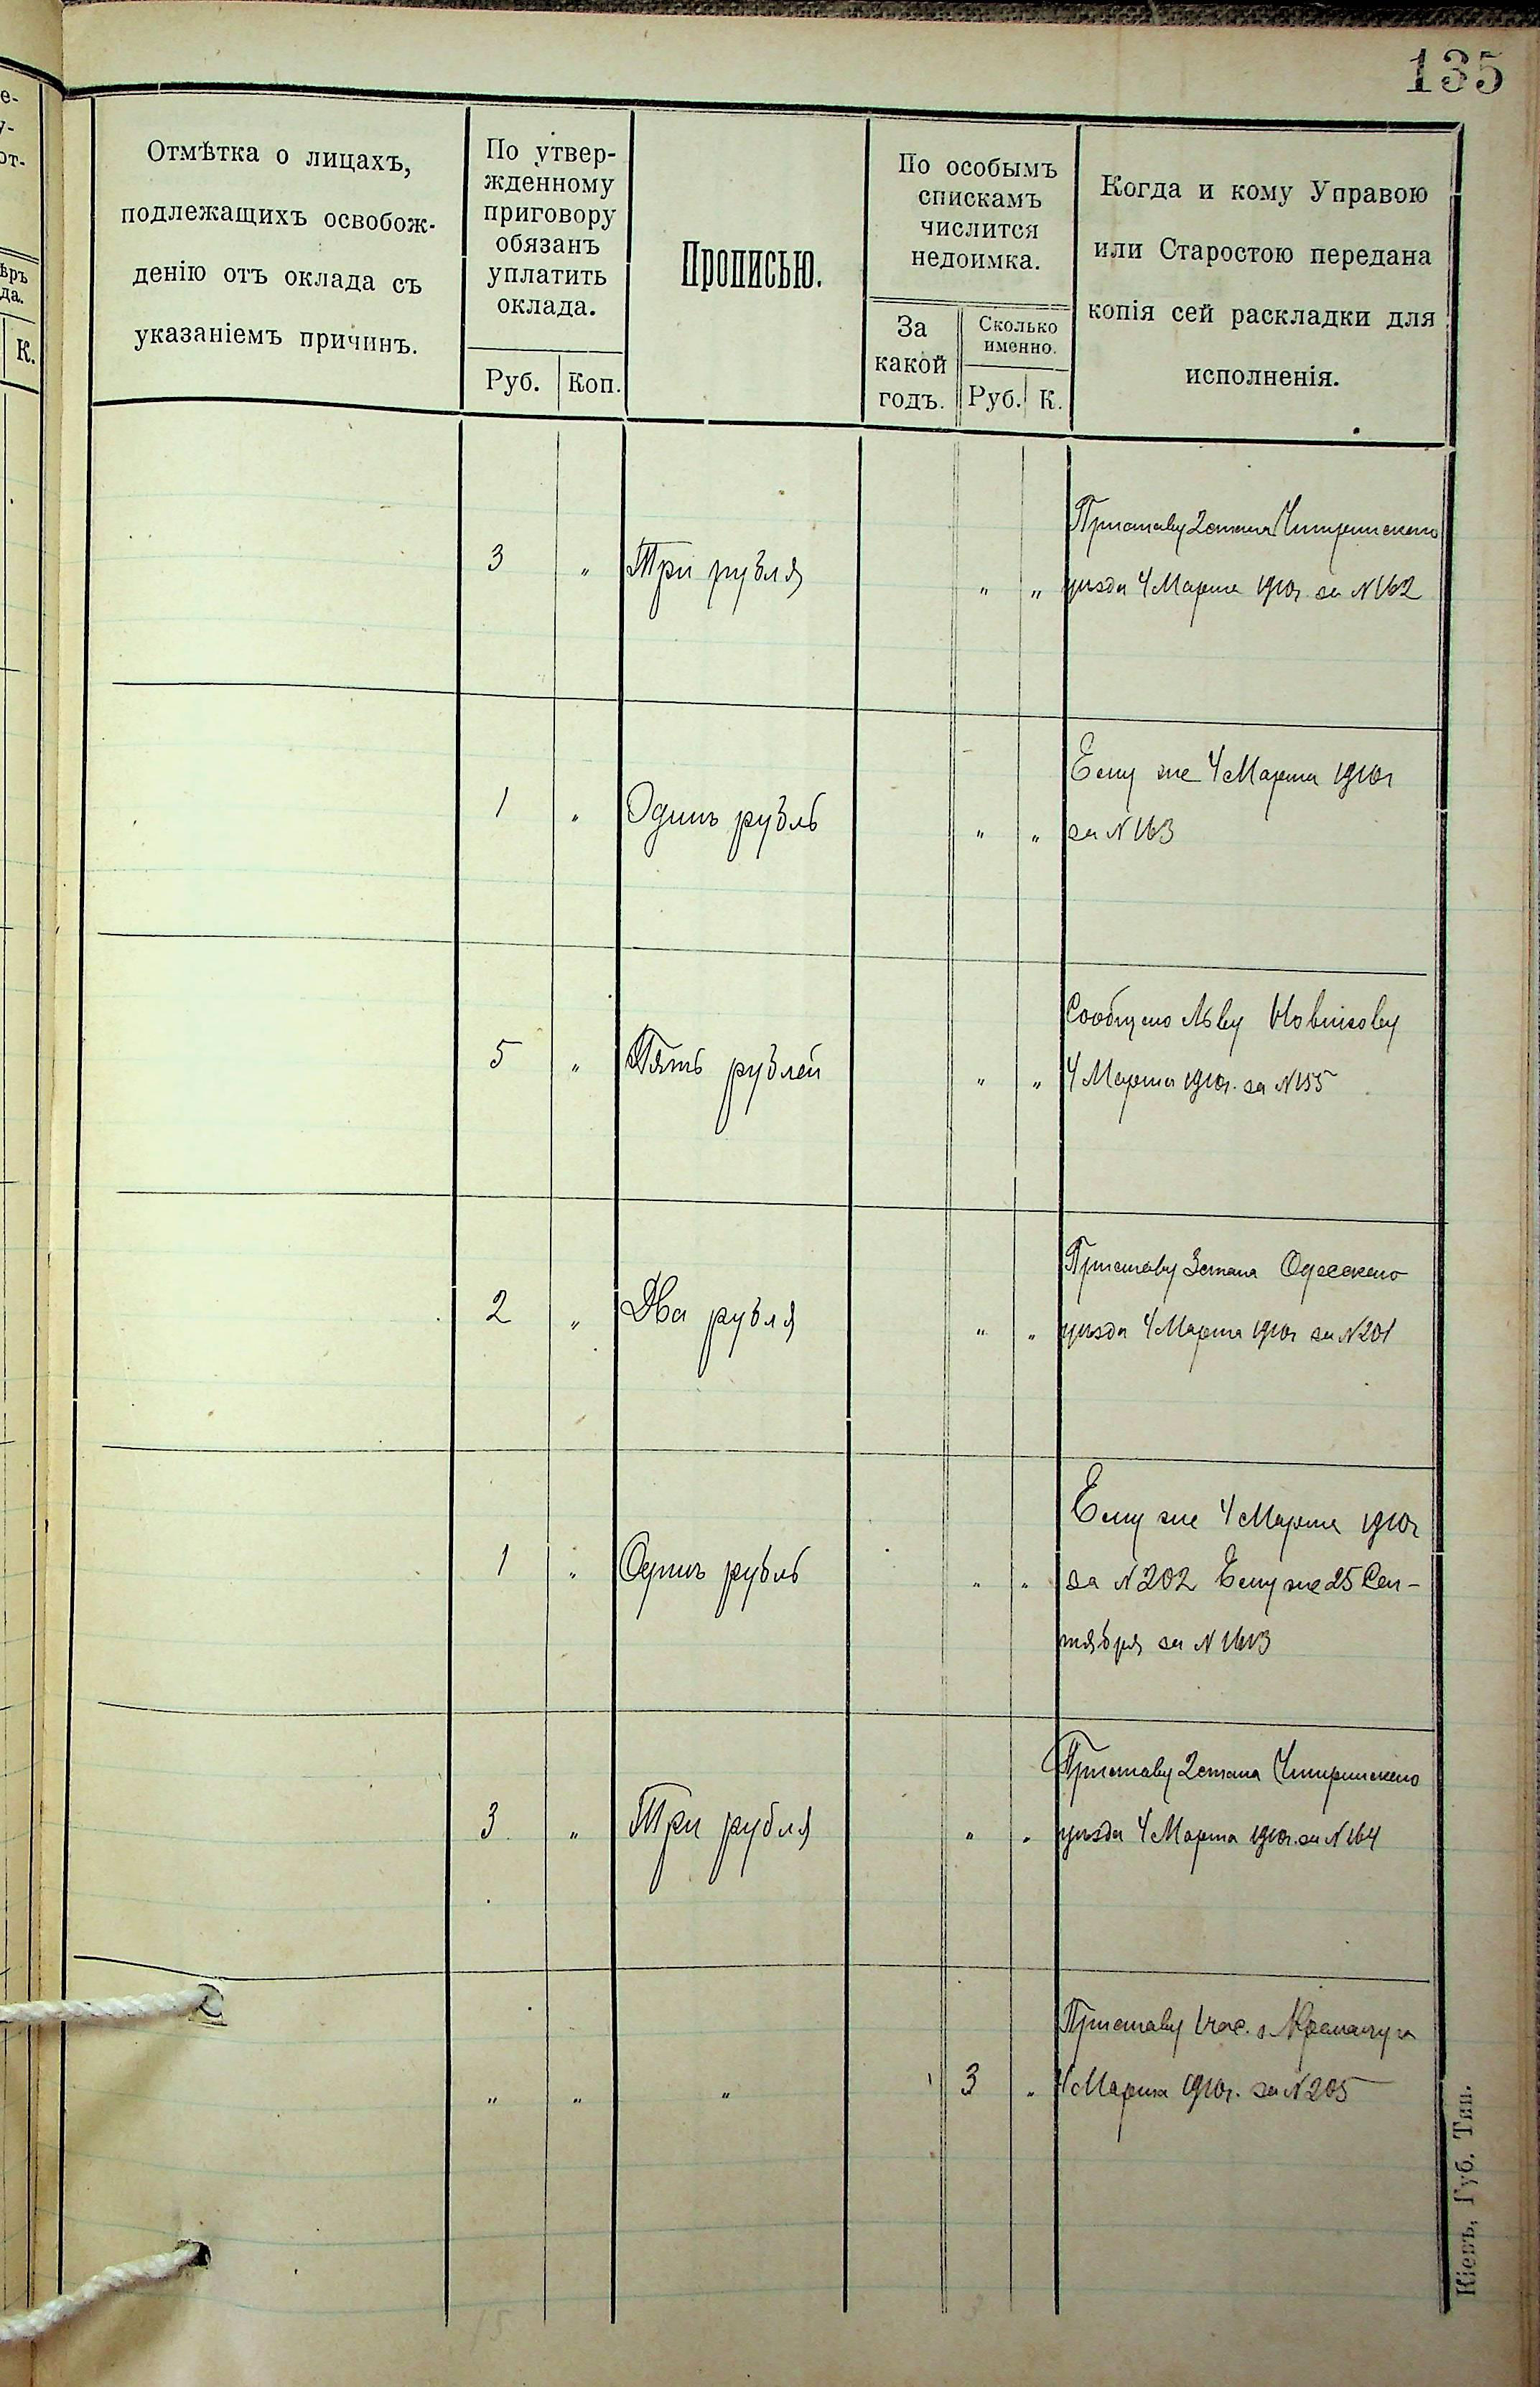 135
Отмѣтка о лицахъ,
подлежащихъ освобож-
денію отъ оклада съ
указаніемъ причинъ.
По утвер-
жденному
приговору
обязанъ
уплатить
оклада.
Руб. Коп.
Прописью.
По особымъ
спискамъ
числится
недоимка.
За
какой
годъ.
Сколько
именно.
Руб. К.
Когда и кому Управою
или Старостою передана
копія сей раскладки для
исполненія.
е-
у-
от-
ѣръ
да.
К.
Приставу 2 стана Чигиринскаго
3 " Три рубля " " уѣзда 4 Марта 1910г. за №162
Ему же 4 Марта 1910г
1 " Одинъ рубль " " за №163
Сообщено Льву Новикову
5 " Пять рублей " " 4 Марта 1910г. за №155
Приставу 3 стана Одесскаго
2 " Два рубля " " уѣзда 4 Марта 1910г за №201
Ему же 4 Марта 1910г
1 " Одинъ рубль " " за №202 Ему же 25 Сен-
тября за №
Приставу 2 стана Чигиринскаго
3 " Три рубля " " уѣзда 4 Марта 1910г. за №164
Приставу 1 час. г. Кременчуга
" " " 3 " 4 Марта 1910г. за №205
15 3
Кіевъ, Губ. Тип.